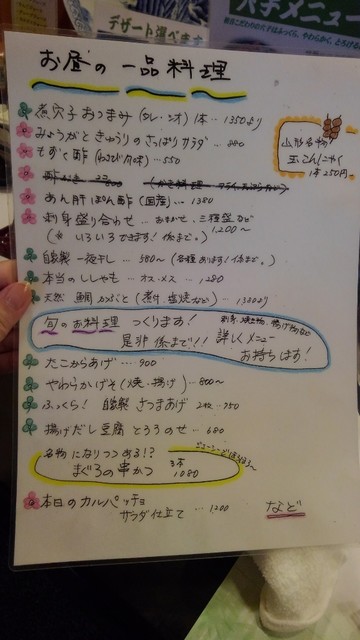 デザート選べます
穴子メニュー
お昼の一品料理
煮穴子おつまみ (タレ・シオ) 1本 … 1350より
みょうがときゅうりのさっぱりサラダ … 880
もずく酢 (わさび風味) … 550
山形名物!
玉こんにゃく
1本 250円。
あん肝ぽん酢 (国産) … 1380
刺身盛り合わせ … おまかせ、三種盛など
(※ いろいろできます! 係まで。) 1,200〜
自家製 一夜干し … 580〜 (各種あります! 係まで。)
本当のししゃも … オス・メス … 1,280
天然 鯛 かぶと (煮付 塩焼など) … 1380より
旬のお料理 つくります!
是非 係まで!! 詳しくメニュー
お持ちします!
たこからあげ … 900
やわらかげそ (焼・揚げ) … 800〜
ふっくら! 自家製 さつまあげ 2枚 … 750
揚げだし豆腐 とろろのせ … 680
名物になりつつある!?
まぐろの串かつ 3本
1080
本日のカルパッチョ
サラダ仕立て … 1200
など